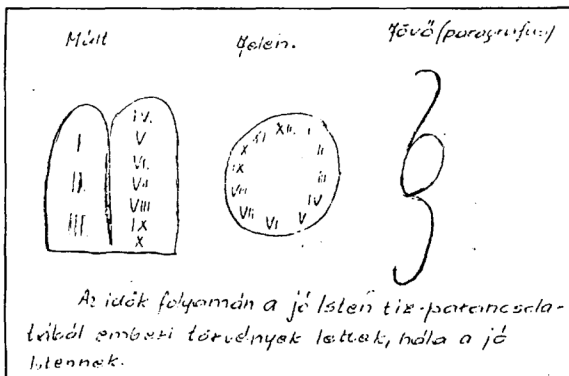 Múlt Jelen. Jövő (paragrafus)
I
II.
III.
IV.
V
VI.
VII
VIII
IX
X
XII. I II III IV V VI. VII VIII IX X XI
Az idők folyamán a jó Isten tiz-parancsola-
tából emberi törvények lettek, hála a jó
Istennek.